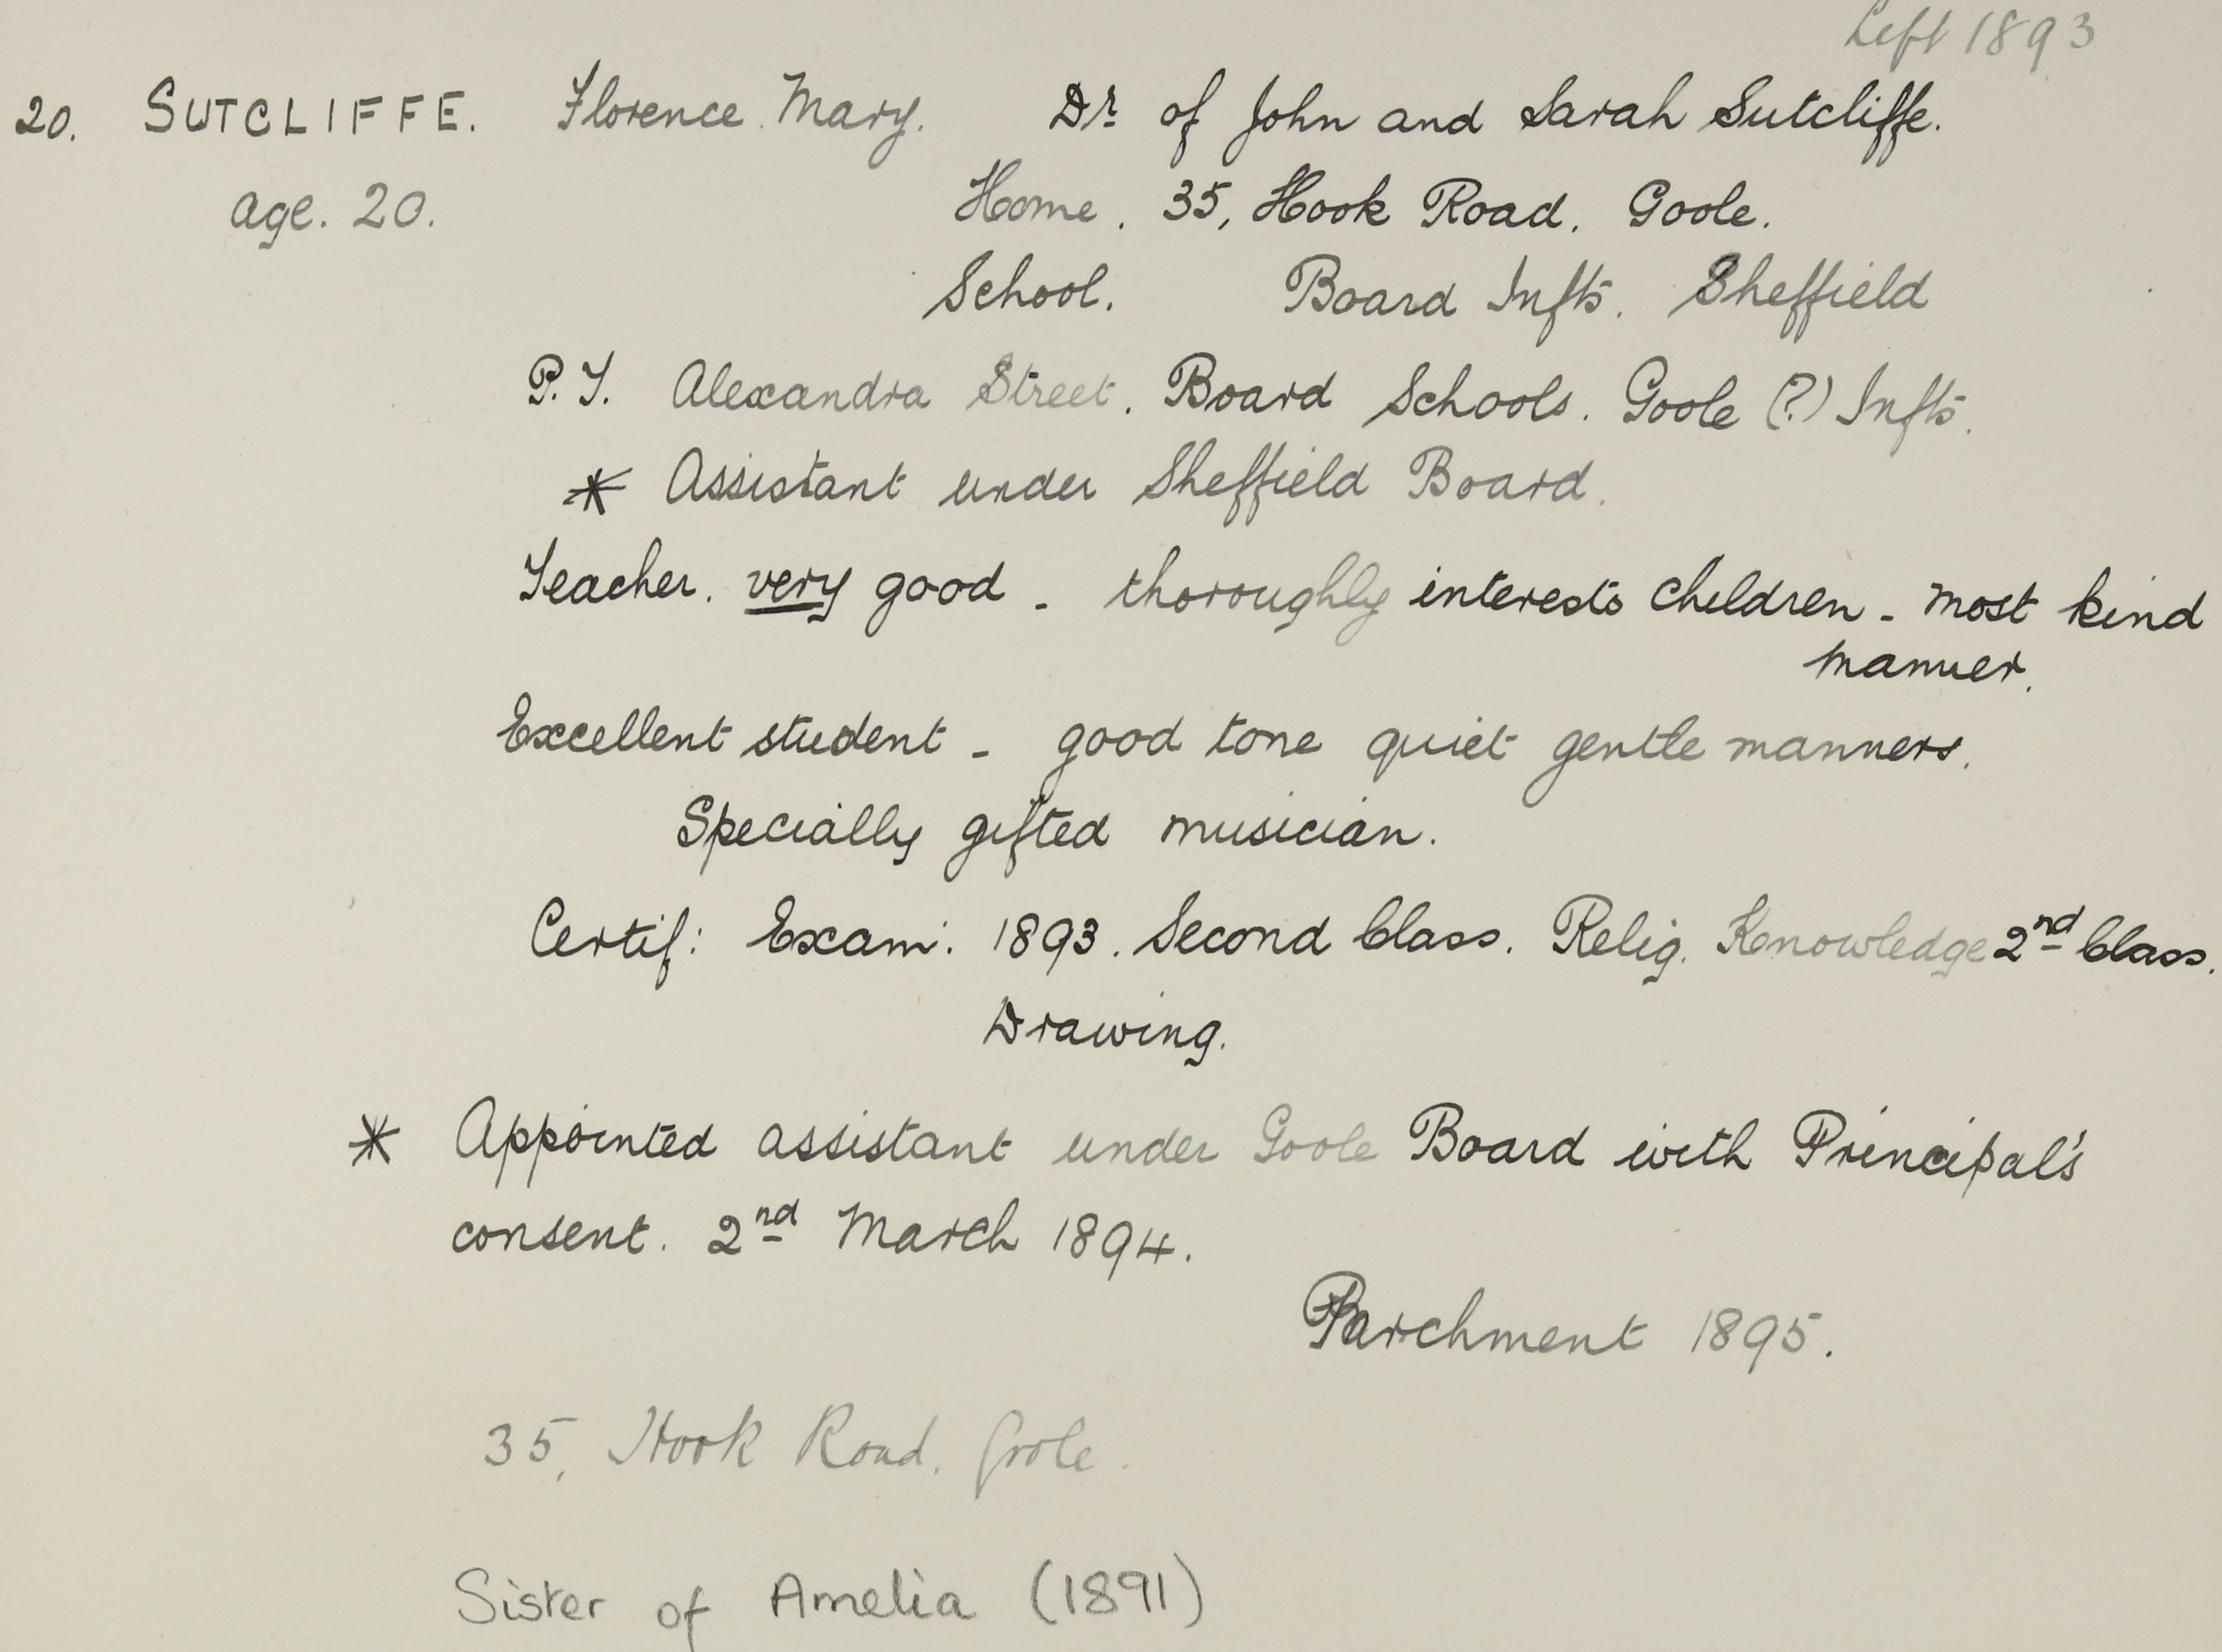 Left 1893
20. SUTCLIFFE. Florence. Mary. Dr. of John and Sarah Sutcliffe.
age. 20. Home. 35, Hook Road. Goole.
School. Board Infts. Sheffield
P.T. Alexandra Street. Board Schools. Goole (?) Infts.
* Assistant under Sheffield Board.
Teacher. very good - thoroughly interests children - most kind
manner.
Excellent student - good tone quiet gentle manners.
Specially gifted musician.
Certif: Exam: 1893. Second Class. Relig. Knowledge 2nd Class.
Drawing.
* Appointed assistant under Goole Board with Principal's
consent. 2nd March 1894.
Parchment 1895.
35, Hook Road. Goole.
Sister of Amelia (1891)